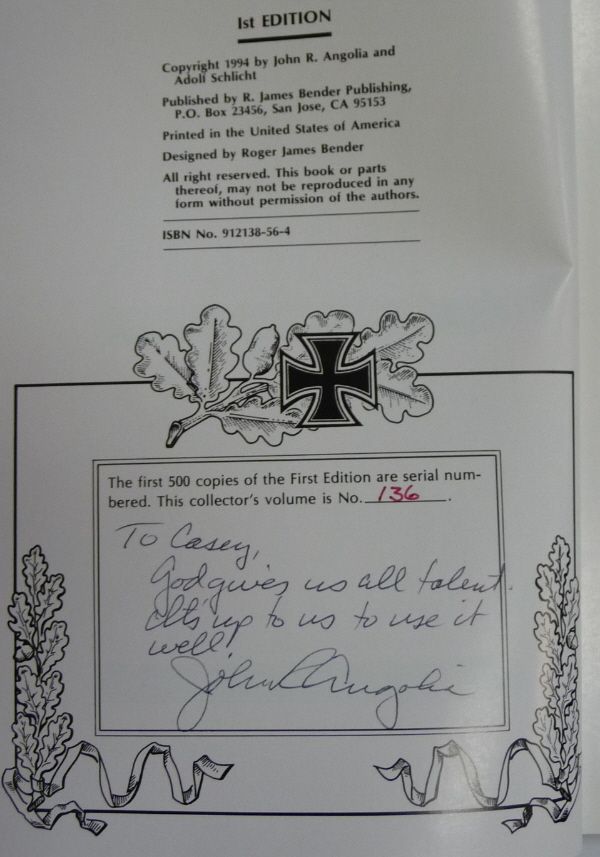 1st EDITION
Copyright 1994 by John R. Angolia and
Adolf Schlicht
Published by R. James Bender Publishing,
P.O. Box 23456, San Jose, CA 95153
Printed in the United States of America
Designed by Roger James Bender
All right reserved. This book or parts
thereof, may not be reproduced in any
form without permission of the authors.
ISBN No. 912138-56-4
The first 500 copies of the First Edition are serial num-
bered. This collector's volume is No. 136.
To Casey,
God gives us all talent.
It's up to us to use it
well!
John R Angolia